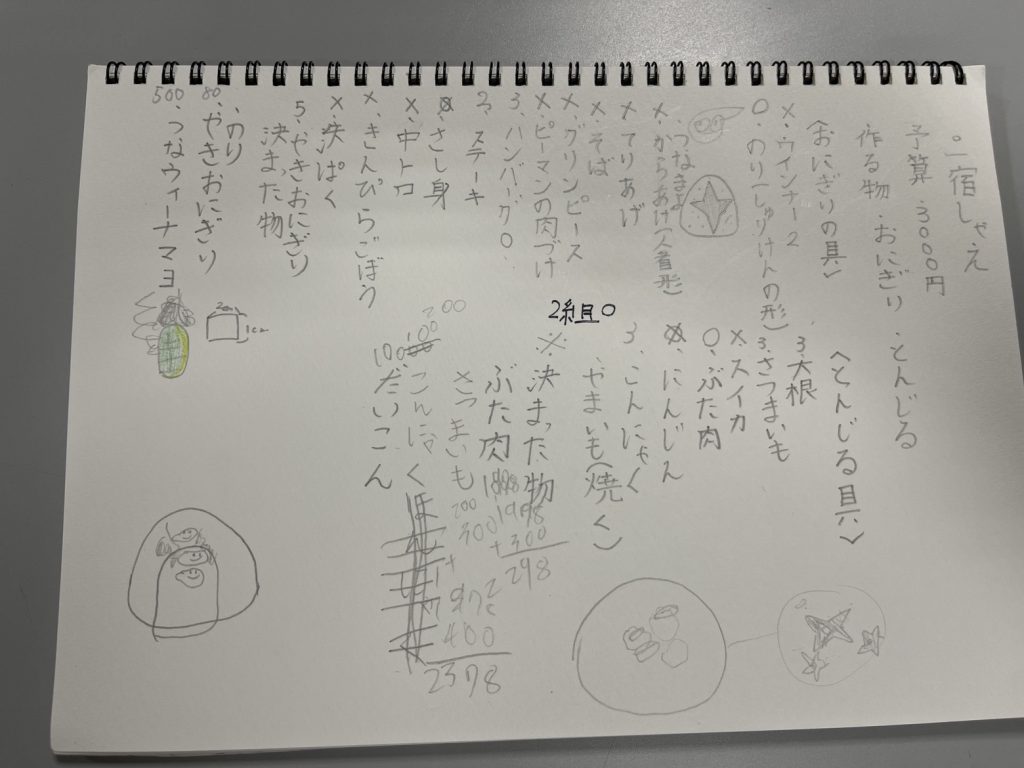 一宿しゃえ
予算.3000円
作る物.おにぎり.とんじる
〈おにぎりの具〉
×、ウインナー2
〇、のり(しゅりけんの形)
、つなまよ
×からあげ(人者形)
×てりあげ
×そば
×グリンピース
×ピーマンの肉づけ
3、ハンバーグ〇、
2、ステーキ
さし身
×、中トロ
×、きんぴらごぼう
×、
5、やきおにぎり
決まった物
、のり
80、やきおにぎり
500、つなウィーナマヨ
2cm
1cm
〈とんじる具〉
3、大根
3、さつまいも
×スイカ
〇、ぶた肉
、にんじん
3、こんにゃく
、やまいも(焼く)
2組〇
※決まった物
ぶた肉
1998
+300
298
さつまいも
200
300
200
100
こんにゃく
100、だいこん
400
2378